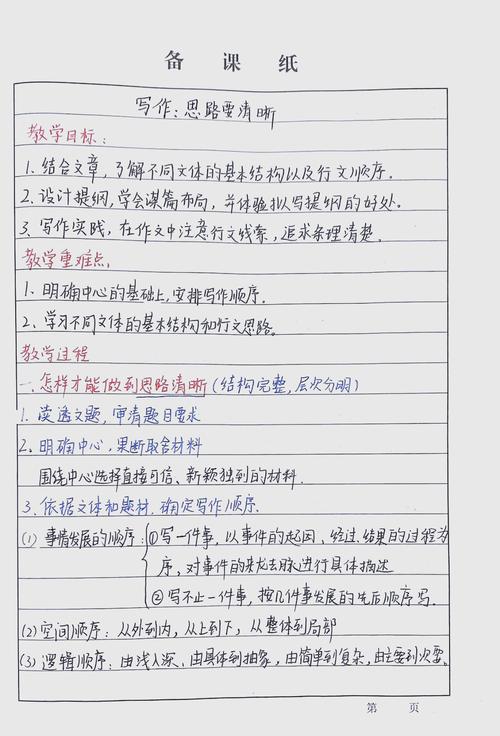 备 课 纸
写作:思路要清晰
教学目标:
1. 结合文章,了解不同文体的基本结构以及行文顺序.
2. 设计提纲,学会谋篇布局,并体验拟写提纲的好处.
3. 写作实践,在作文中注意行文线索,追求条理清楚.
教学重难点:
1. 明确中心的基础上,安排写作顺序.
2. 学习不同文体的基本结构和行文思路.
教学过程
一.怎样才能做到思路清晰(结构完整,层次分明)
1. 读透文题,审清题目要求
2. 明确中心,果断取舍材料
围绕中心选择直接可信、新颖独到的材料.
3. 依据文体和题材.确定写作顺序.
(1) 事情发展的顺序:①写一件事,以事件的起因、经过.结果的过程为
序,对事件的来龙去脉进行具体描述
②写不止一件事,按几件事发展的先后顺序写.
(2) 空间顺序:从外到内,从上到下,从整体到局部
(3) 逻辑顺序:由浅入深、由具体到抽象,由简单到复杂,由主要到次要.
第 页